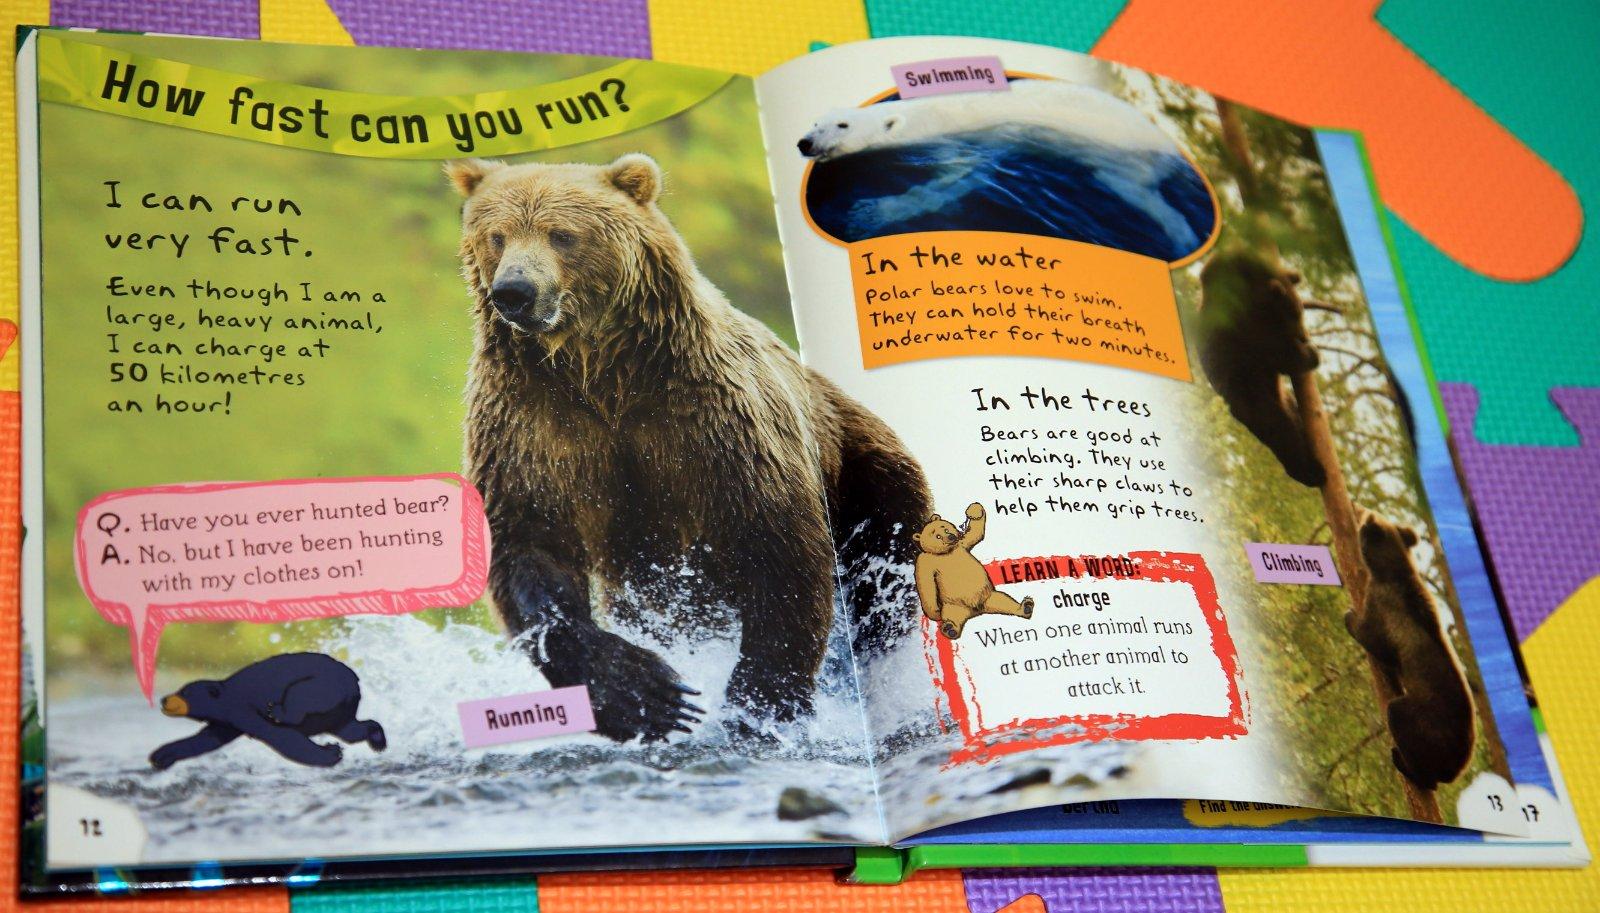 How fast can you run?
I can run
very fast.
Even though I am a
large, heavy animal,
I can charge at
50 kilometres
an hour!
Q. Have you ever hunted bear?
A. No, but I have been hunting
with my clothes on!
Running
12
Swimming
In the water
Polar bears love to swim.
They can hold their breath
underwater for two minutes.
In the trees
Bears are good at
climbing. They use
their sharp claws to
help them grip trees.
Climbing
LEARN A WORD:
charge
When one animal runs
at another animal to
attack it.
13
17
Find the